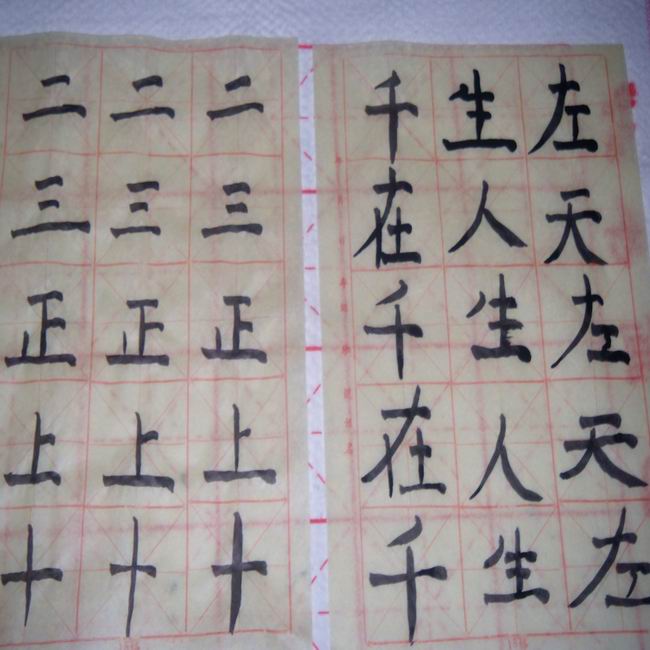 左天左天左
生人生人生
千在千在千
二三正上十
二三正上十
二三正上十